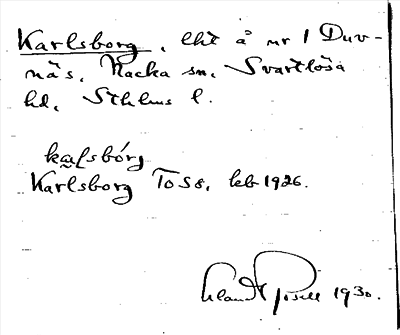 Karlsborg, lht å nr 1 Duv-
näs, Nacka sn, Svartlösa
hd, Sthlms l.
kaʃsbórg
Karlsborg To S8, leb 1926.
1930.